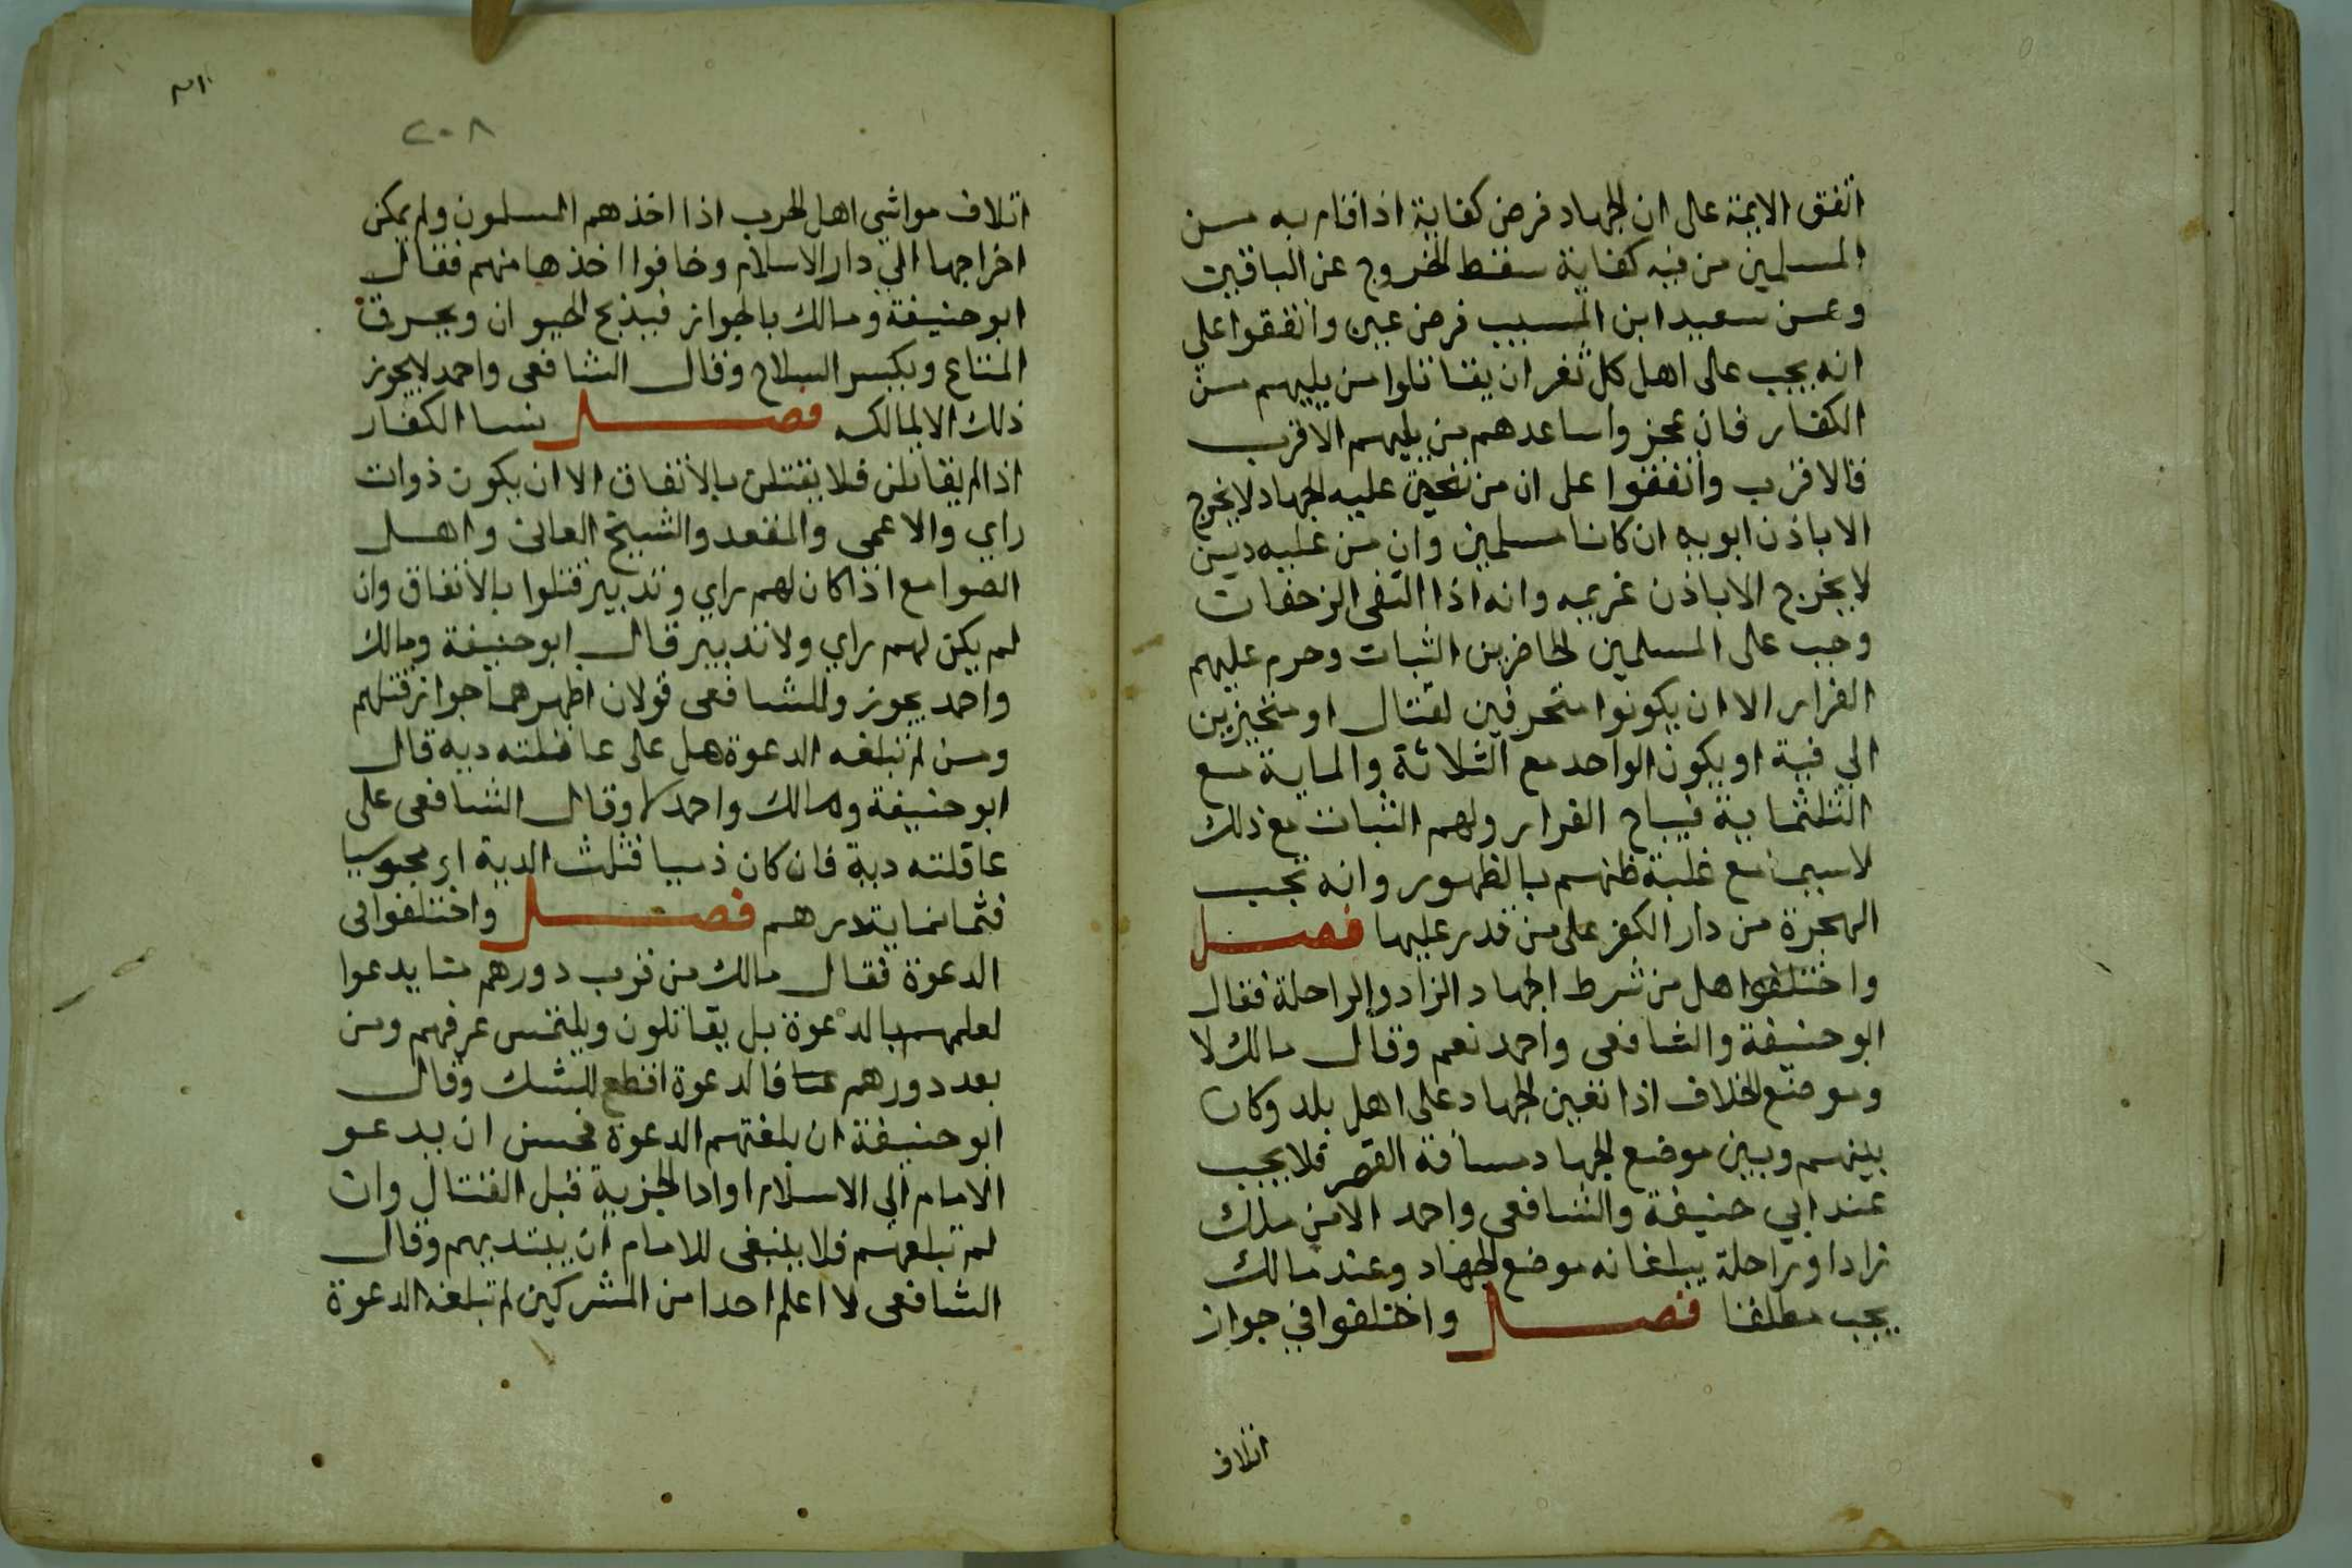 اتفق الايمة على ان الجهاد فرض كفاية اذا قام به من
المسلمين من فيه كفاية سقط الخروج عن الباقين
وعن سعيد ابن المسيب فرض عين واتفقوا علي
انه يجب على اهل كل ثغر ان يقاتلوا من يليهم من
الكفار فان عجزوا ساعدهم من يليهم الاقرب
فالاقرب واتفقوا على ان من تعين عليه الجهاد لا يخرج
الا باذن ابويه ان كانا مسلمين وان من عليه دين
لا يخرج الا باذن غريمه وانه اذا التقى الزحفان
وجب على المسلمين الحاضرين الثبات وحرم عليهم
الفرار الا ان يكونوا متحرفين لقتال او متحيزين
الي فية او يكون الواحد مع الثلاثة والماية مع
الثلثماية فيباح الفرار ولهم الثبات مع ذلك
لا سيما مع غلبة ظنهم بالظهور وانه تجب
الهجرة من دار الكفر على من قدر عليها فصل
واختلفوا هل من شرط الجهاد الزاد والراحلة فقال
ابو حنيفة والشافعى واحمد نعم وقال مالك لا
وموضع الخلاف اذا تعين الجهاد على اهل بلد وكان
بينهم وبين موضع الجهاد مسافة القصر فلا يجب
عند ابي حنيفة والشافعى واحمد الا من ملك
زادا وراحلة يبلغانه موضع الجهاد وعند مالك
يجب مطلقا فصل واختلفوا في جواز
اتلاف
٢٠٨
اتلاف مواشي اهل الحرب اذا اخذهم المسلمون ولم يمكن
اخراجها الي دار الاسلام وخافوا اخذها منهم فقال
ابو حنيفة ومالك بالجواز فيذبح الحيوان ويحرق
المتاع ويكسر السلاح وقال الشافعى واحمد لا يجوز
ذلك الا لمالكه فصل نسا الكفار
اذا لم يقاتلن فلا يقتلن بالاتفاق الا ان يكون ذوات
راي والاعمى والمقعد والشيخ الفانى واهل
الصوامع اذا كان لهم راي وتدبير قتلوا بالاتفاق وان
لم يكن لهم راي ولا تدبير قال ابو حنيفة ومالك
واحمد يجوز وللشافعى قولان اظهرهما جواز قتلهم
ومن لم تبلغه الدعوة هل على عاقلته دية قال
ابو حنيفة ومالك واحمد لا وقال الشافعى على
عاقلته دية فان كان ذميا فثلث الدية او مجوسيا
فثمانماية درهم فصل واختلفوا فى
الدعوة فقال مالك من قرب دورهم منا يدعوا
لعلمهم بالدعوة بل يقاتلون ويلتمس غرفهم ومن
بعد دورهم عنا فالدعوة اقطع للشك وقال
ابو حنيفة ان بلغتهم الدعوة فحسن ان يدعو
الامام الي الاسلام او ادا الجزية قبل القتال وان
لم تبلغهم فلا ينبغى للامام ان يبتديهم وقال
الشافعى لا اعلم احدا من المشركين لم تبلغه الدعوة